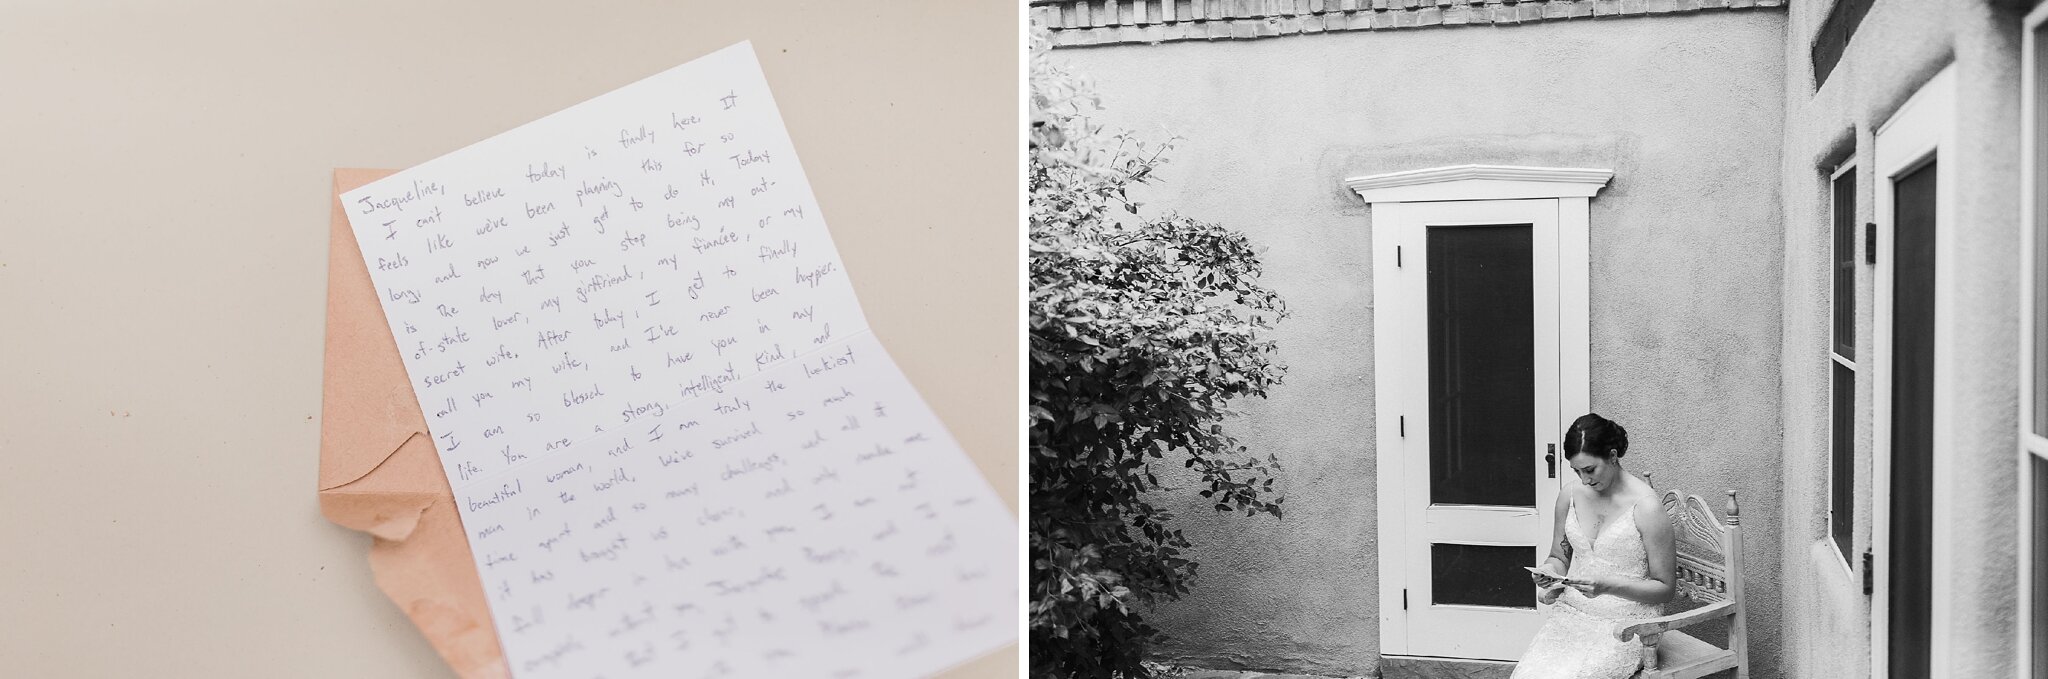 Jacqueline,
I can't believe today is finally here. It
feels like we've been planning this for so
long, and now we just get to do it. Today
is the day that you stop being my out-
of-state lover, my girlfriend, my fiancée, or my
secret wife. After today, I get to finally
call you my wife, and I've never been happier.
I am so blessed to have you in my
life. You are a strong, intelligent, kind, and
beautiful woman, and I am truly the luckiest
man in the world. We've survived so much
time apart and so many challenges, and all it
it has brought us closer, and only made me
fall deeper in love with you. I am not
complete without you